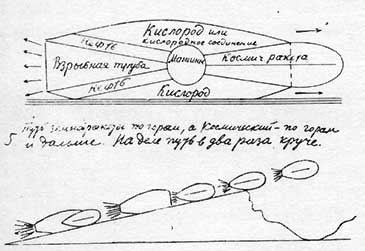 Кислород или
кислородное соединение
Нефть
Взрывная труба
Машины
Космич ракета
Нефть
Кислород
5 Путь земн. ракеты по горам, а космический - по горам
и дальше. На деле путь в два раза круче.